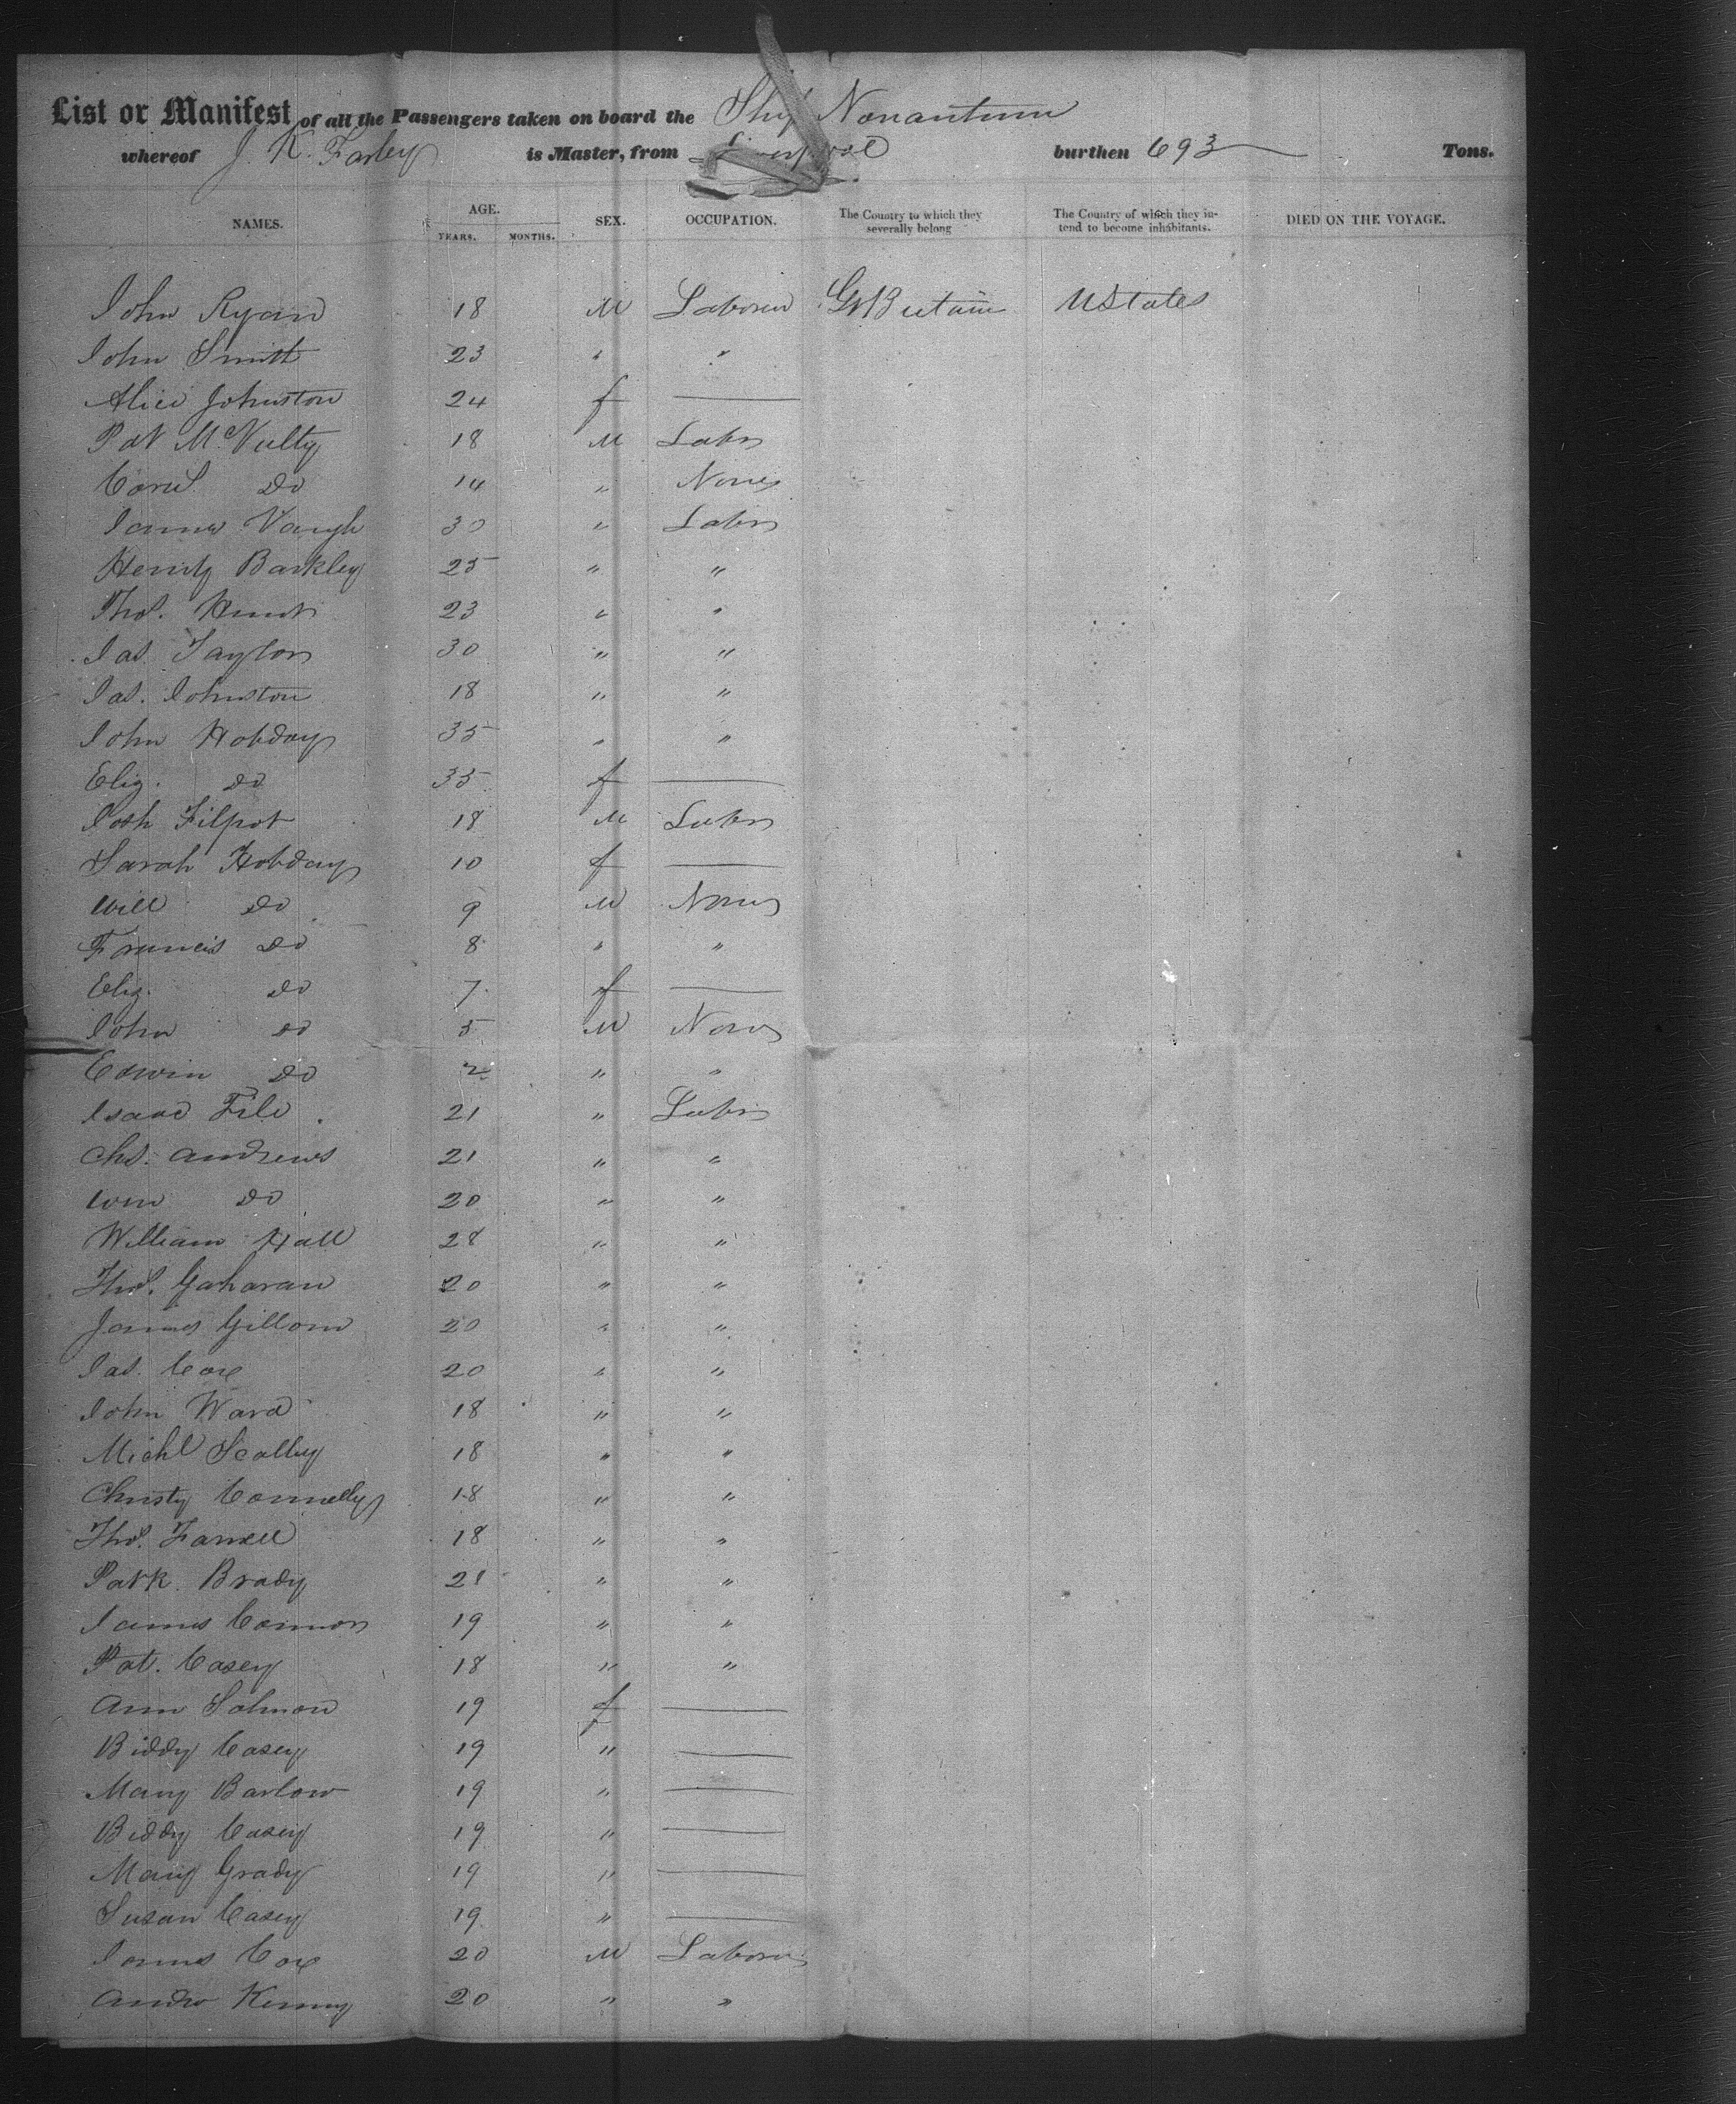 List or Manifest of all the Passengers taken on board the Ship Nonantum
whereof J. K. Farley is Master, from Liverpool burthen 693 Tons.
NAMES. AGE. YEARS. MONTHS. SEX. OCCUPATION. The Country to which they severally belong The Country of which they intend to become inhabitants. DIED ON THE VOYAGE.
John Ryan 18 M Laborer Gt Britain U States
John Smith 23 " "
Alice Johnston 24 f —
Pat McNulty 18 M Labr
Corns Do 14 " None
James Vaugh 30 " Labr
Henry Barkley 25 " "
Thos. Hunt 23 " "
Jas. Taylor 30 " "
Jas. Johnston 18 " "
John Hobday 35 " "
Eliz. Do 35 f —
Josh Filpot 18 M Labr
Sarah Hobday 10 f —
Will Do 9 M None
Francis Do 8 " "
Eliz. Do 7 f —
John Do 5 M None
Edwin Do 2 " "
Isaac File 21 " Labr
Chs. Andrews 21 " "
Wm Do 20 " "
William Hall 28 " "
Thos. Gaharan 20 " "
James Gillom 20 " "
Jas. Cox 20 " "
John Ward 18 " "
Michl Scally 18 " "
Christy Connelly 18 " "
Thos. Farrell 18 " "
Patk. Brady 21 " "
James Connor 19 " "
Pat. Casey 18 " "
Ann Salmon 19 f —
Biddy Casey 19 " —
Mary Barlow 19 " —
Biddy Casey 19 " —
Mary Grady 19 " —
Susan Casey 19 " —
James Cox 20 M Laborer
Andw Kenny 20 " "